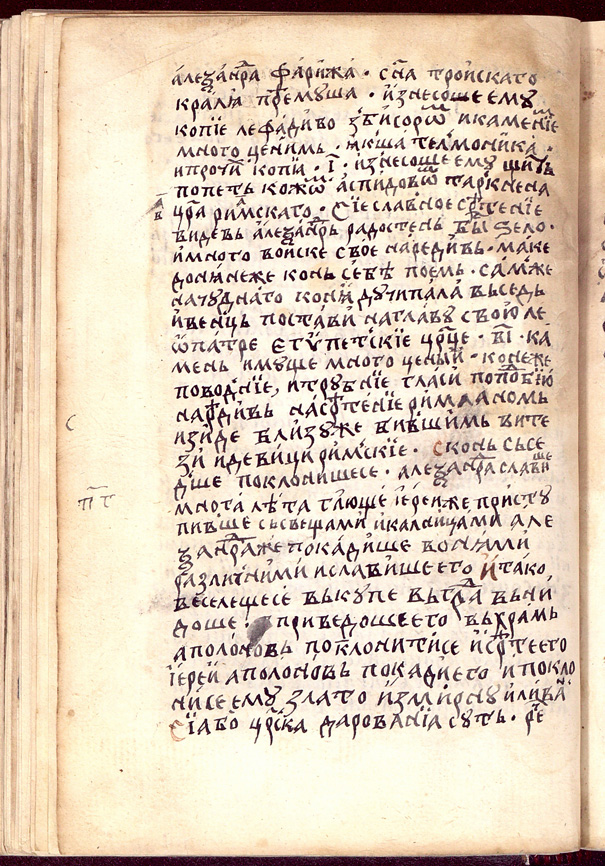 алеѯанⷣра фарижа · сн҃а тройскаго
кралꙗ премуша · изнесоше ему
копїе лефадиво з бисорѡⷨ и каменїеⷨ
много ценимь · ꙗкша телмоника ·
и прочїи копїи · і҃ · изнесоше ему щить
попеть кожѡⷨ аспидовѡⷨ таркнена
цр҃а римскаго · Сїе славное срⷮенїе
видевь алеѯанⷣрь радостень бы ѕело ·
и много войске свое наредивь · маке
донꙗнеже конь себѣ поемь · самже
на чуднаго конꙗ дучипала вьседь
и венць постави на главу свою ле
ѡпатре егупетскїе црⷪце · в҃і · ка
мень имуще много ценьїй · конеже
поводнїе, и трубнїе гласи по подобїю
нарⷣдивь на срⷮенїе римлꙗномь
изїде близуже бившимь вите
зи и девици римⷭкїе · с конь сьсе
дше поклонишесе · алеѯанⷣра славише
многа лѣта гл҃юще їереи же присту
пивше сьсвещами и калницами але
ѯанⷣра же покадише вонꙗми
различними и славише его И тако
веселещесе вькупе вь граⷣ вьни
доше · приведоше его вь храмь
аполоновь поклонитисе и срⷮе его
їереи аполоновь покади его и покло
нисе ему злато измирну и ливаⷩ
Сїа бо црⷭка дарованїа суть · рⷱе
п҃г